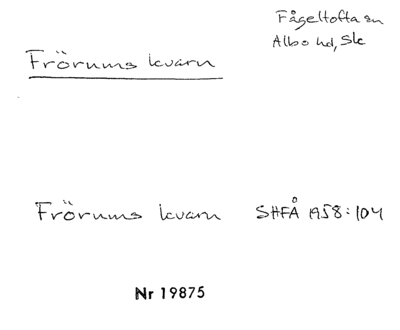 Fågeltofta sn
Albo hd, Sk
Frörums kvarn
Frörums kvarn SHFÅ 1958:104
Nr 19875